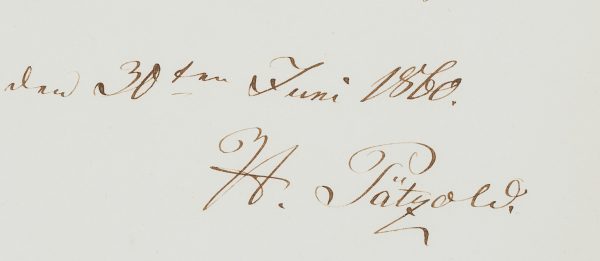 den 30ten Juni 1860.
H. Pätzold.